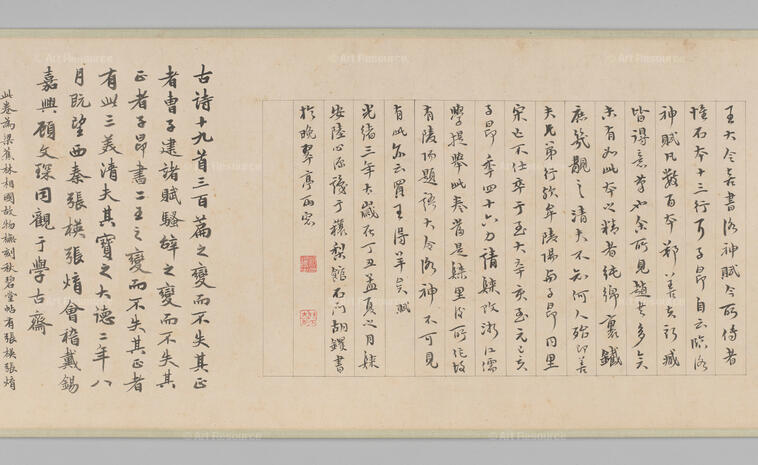 王大令書洛神賦今所傳者
惟石本十三行耳子昂自云臨洛
神賦凡數百本鄭善夫所臧
皆得意筆如余所見趙書多矣
未有如此本之精者純綿裹鐵
庶幾觀之清夫不知何人殆即善
夫兄弟行歟牟陵陽與子昂同里
宋亡不仕卒于至大辛亥至元己亥
子昂年四十六方請疾改浙江儒
學提舉此卷當是疾里後所作故
有陵陽題語大令洛神不可見
有此亦云買王得羊矣賦
光緒三年太歲在丁丑孟夏之月疾
安陸心源識于穰梨館石門胡钁書
於晚翠亭西窗
古詩十九首三百篇之變而不失其正
者曹子建諸賦騷辭之變而不失其
正者子昂書二王之變而不失其正者
有此三美清夫其寶之大德二年八
月既望西秦張楧張焴會稽戴錫
嘉興顧文琛同觀于學古齋
此卷為梁蕉林相國故物橅刻秋碧堂帖有張楧張焴
Art Resource